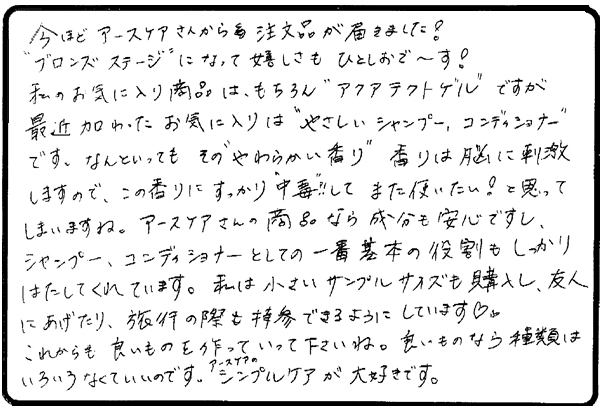 今ほど アースケアさんから 注文品が届きました!
"ブロンズ ステージ"になって嬉しさも ひとしおで〜す!
私のお気に入り商品は、もちろん"アクアテクトゲル"ですが
最近加わったお気に入りは"やさしいシャンプー、コンディショナー"
です。なんといっても その"やわらかい香り" 香りは脳に刺激
しますので、この香りにすっかり"中毒"!!して また使いたい!と思って
しまいますね。アースケアさんの商品なら成分も安心ですし、
シャンプー、コンディショナーとしての一番基本の役割もしっかり
はたしてくれています。私は小さいサンプルサイズも購入し、友人
にあげたり、旅行の際も持参できるようにしています♡。
これからも良いものを作っていって下さいね。良いものなら種類は
いろいろなくていいのです。アースケアのシンプルケアが大好きです。